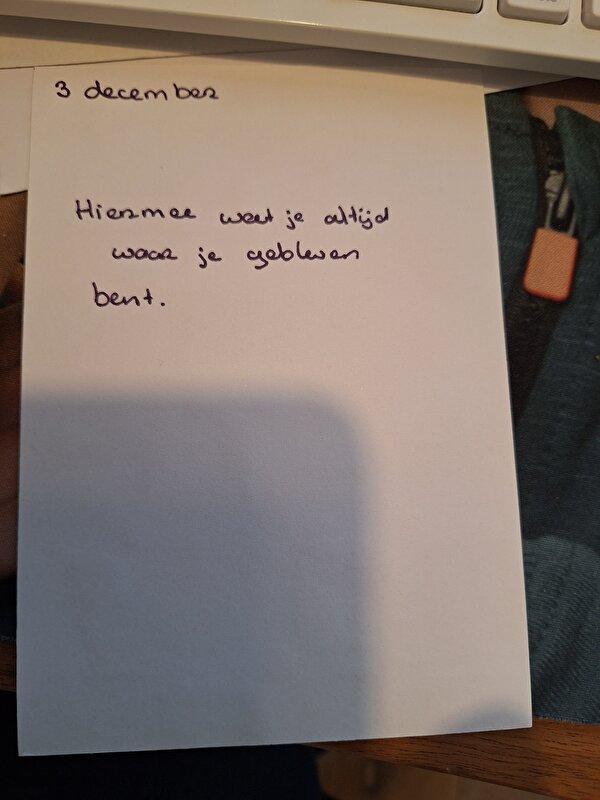 3 december
Hiermee weet je altijd
waar je gebleven
bent.